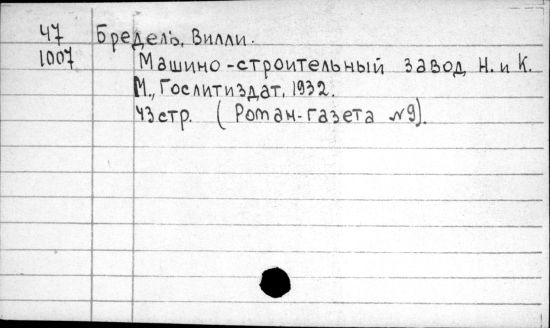 47 Бредель, Вилли.
1007 Машино-строительный завод Н. и К.
М., Гослитиздат, 1932.
43 стр. (Роман-газета №9).